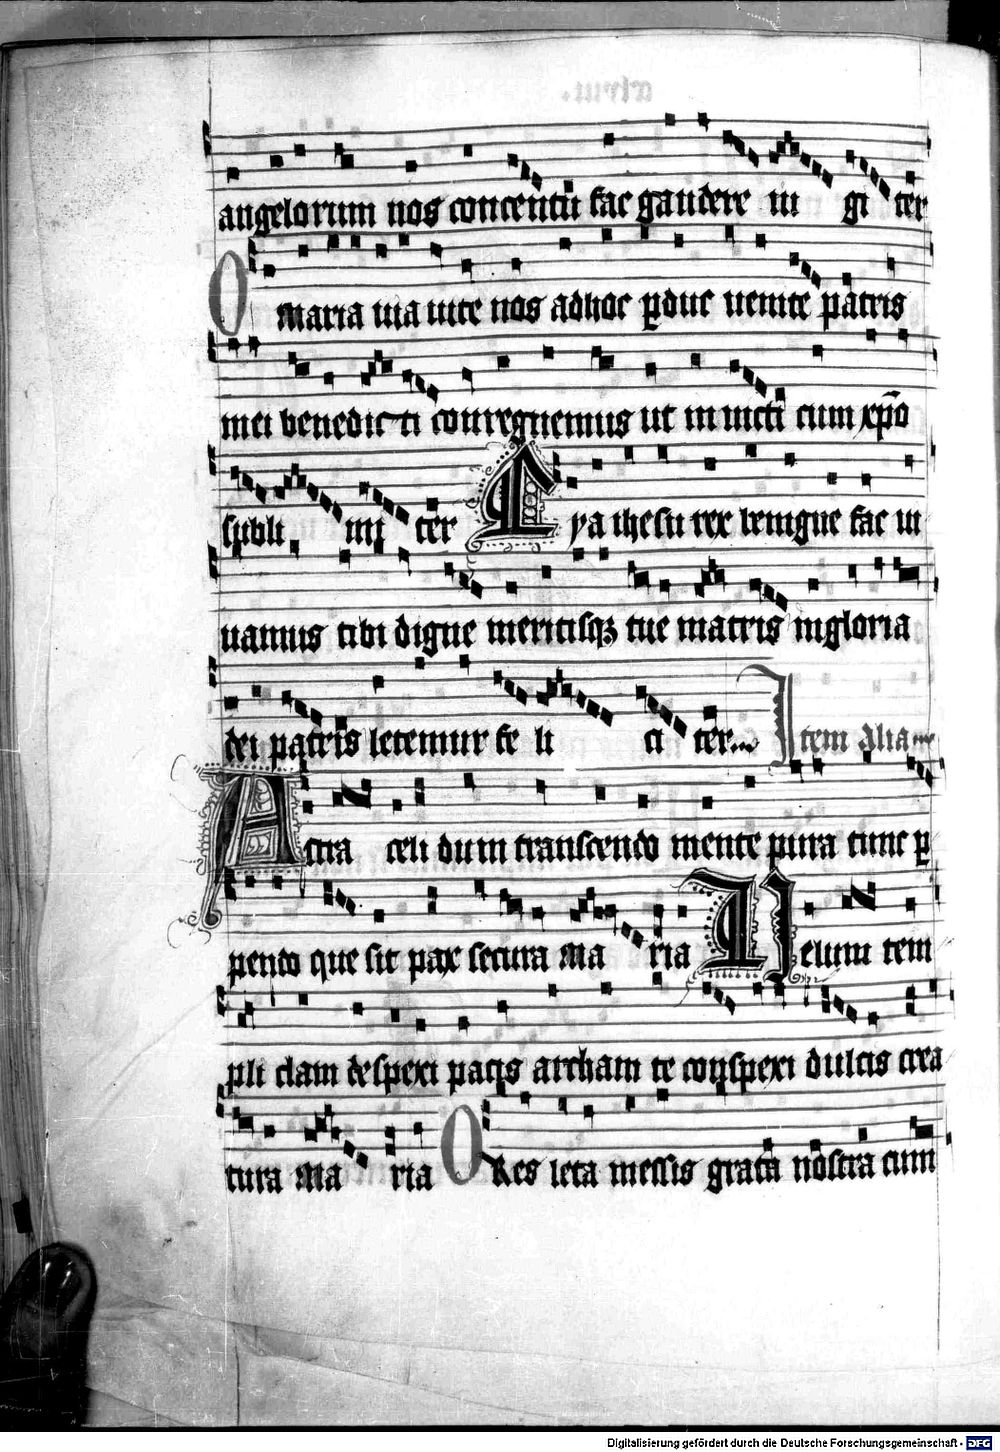 angelorum nos concentu fac gaudere iu gi ter
O maria uia uite nos adhoc ꝑduc uenite patris
mei benedic ti conregnemus ut in uicti cum xp̄o
subli mi ter Eya ihesu rex benigne fac ui
uamus tibi digne meritisqꝫ tue matris in gloria
dei patris letemur fe li ci ter Item alia
Astra celi dum transcendo mente pura tunc ꝑ
pendo que sit pax secura Ma ria Uelum tem
pli clam despexi pacis archam te conspexi dulcis crea
tura Ma ria ORes leta messis grata nostra cum
Digitalisierung gefördert durch die Deutsche Forschungsgemeinschaft - DFG